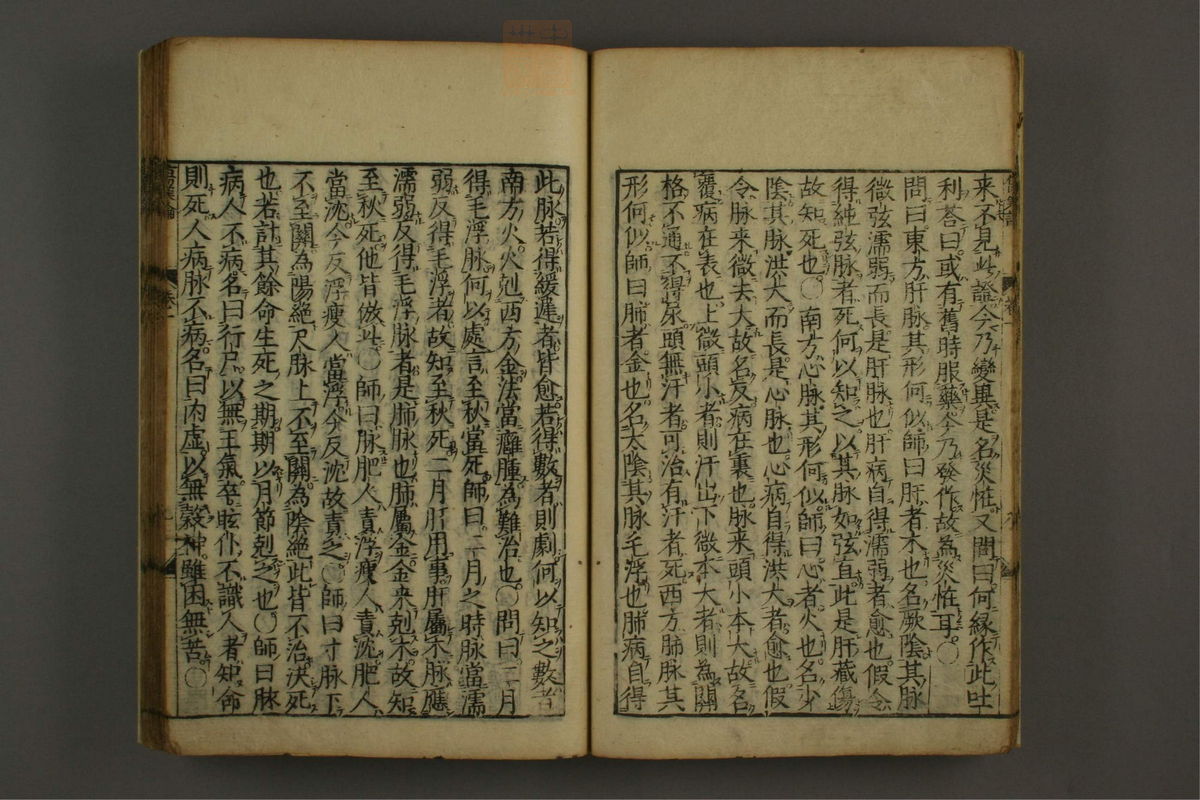 来不見此證今乃變異是名災怪又問曰何緣作此吐
利荅曰或有舊時服藥今乃發作故為災怪耳〇
問曰東方肝脉其形何似師曰肝者木也名厥陰其脉
微弦濡弱而長是肝脉也肝病自得濡弱者愈也假令
得純弦脉者死何以知之以其脉如弦直此是肝藏傷
故知死也〇南方心脉其形何似師曰心者火也名少
陰其脉洪大而長是心脉也心病自得洪大者愈也假
令脉来微去大故名反病在裏也脉来頭小本大故名
覆病在表也上微頭小者則汗出下微本大者則為關
格不通不得尿頭無汗者可治有汗者死西方肺脉其
形何似師曰肺者金也名太陰其脉毛浮也肺病自得
此脉若得緩遲者皆愈若得數者則劇何以知之數者
南方火火剋西方金法當癰腫為難治也〇問曰二月
得毛浮脉何以處言至秋當死師曰二月之時脉當濡
弱反得毛浮者故知至秋死二月肝用事肝屬木脉應
濡弱反得毛浮脉者是肺脉也肺屬金金来剋木故知
至秋死他皆倣此〇師曰脉肥人責浮瘦人責沈肥人
當沈今反浮瘦人當浮今反沈故責之〇師曰寸脉下
不至關為陽絕尺脉上不至關為陰絕此皆不治決死
也若計其餘命生死之期期以月節剋之也〇師曰脉
病人不病名曰行尸以無王氣卒眩仆不識人者短命
則死人病脉不病名曰内虛以無穀神雖困無苦〇